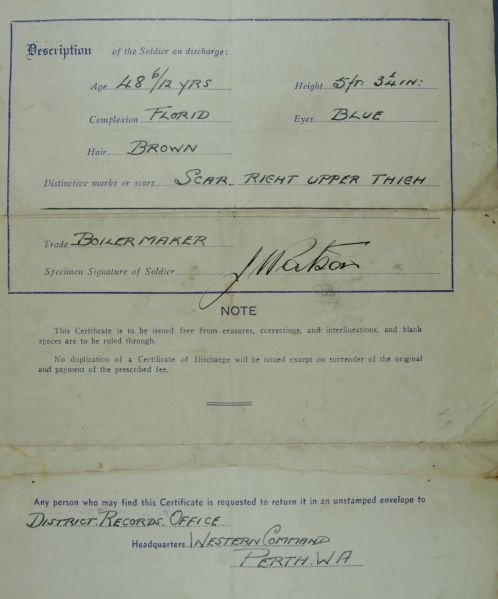 Description of the Soldier on discharge:
Age 48 6/12 YRS Height 5 ft. 3½ IN:
Complexion FLORID Eyes BLUE
Hair BROWN
Distinctive marks or scars SCAR. RIGHT UPPER THIGH
Trade BOILERMAKER
Specimen Signature of Soldier x J Watson x
NOTE
This Certificate is to be issued free from erasures, corrections, and interlineations, and blank
spaces are to be ruled through.
No duplication of a Certificate of Discharge will be issued except on surrender of the original
and payment of the prescribed fee.
Any person who may find this Certificate is requested to return it in an unstamped envelope to
DISTRICT RECORDS OFFICE
Headquarters WESTERN COMMAND
PERTH. WA